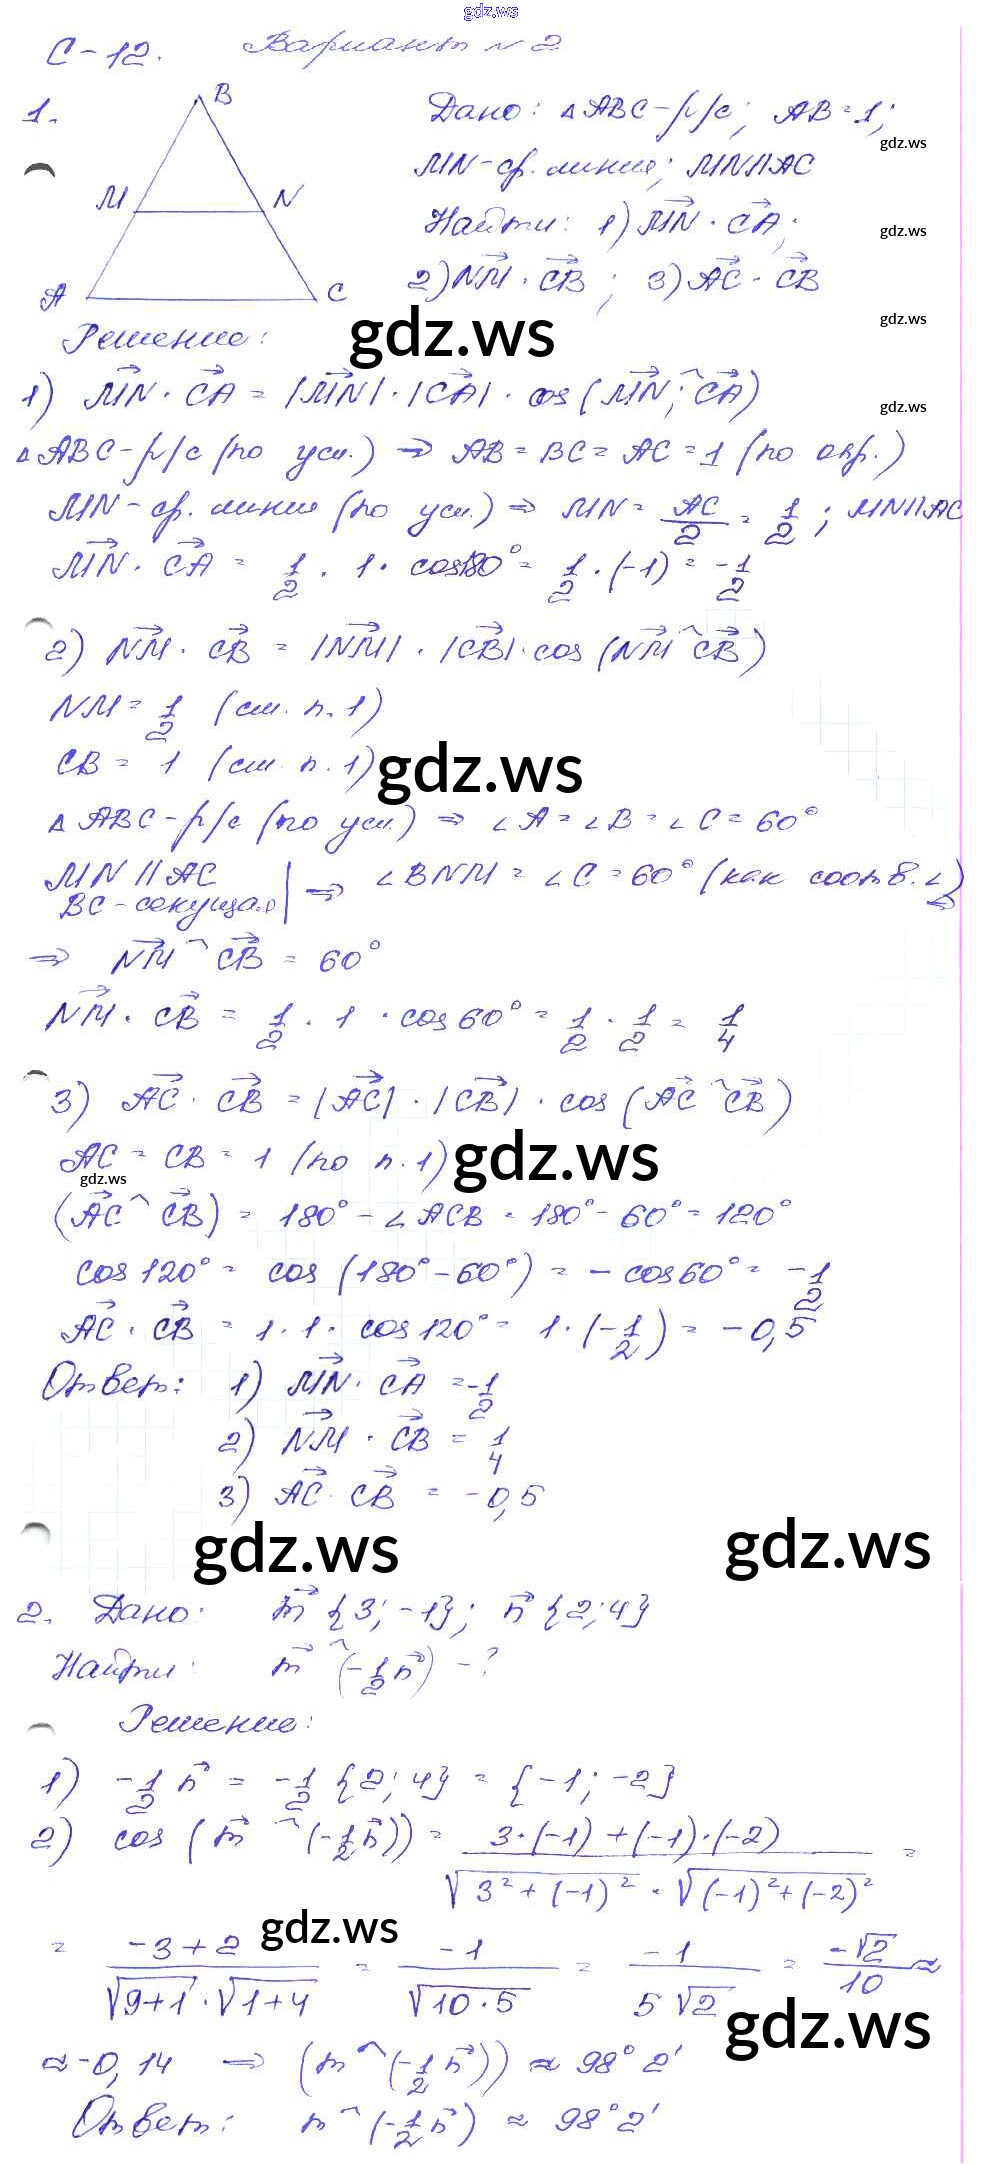 gdz.ws
С-12. Вариант №2
1.
B
M N
A C
Дано: △ABC-р/с; AB=1;
MN-ср. линия; MN||AC
gdz.ws
Найти: 1) MN⃗ · CA⃗;
gdz.ws
2) NM⃗ · CB⃗; 3) AC⃗ · CB⃗
gdz.ws
gdz.ws
Решение:
1) MN⃗ · CA⃗ = |MN⃗| · |CA⃗| · cos(MN⃗;^CA⃗)
gdz.ws
△ABC-р/с (по усл.) ⇒ AB = BC = AC = 1 (по опр.)
MN-ср. линия (по усл.) ⇒ MN = AC/2 = 1/2; MN||AC
MN⃗ · CA⃗ = 1/2 · 1 · cos180° = 1/2 · (-1) = -1/2
2) NM⃗ · CB⃗ = |NM⃗| · |CB⃗| · cos(NM⃗^CB⃗)
NM = 1/2 (см. п. 1)
CB = 1 (см. п. 1)
gdz.ws
△ABC-р/с (по усл.) ⇒ ∠A = ∠B = ∠C = 60°
MN || AC
BC-секущая | ⇒ ∠BNM = ∠C = 60° (как соотв. ∠)
⇒ NM⃗^CB⃗ = 60°
NM⃗ · CB⃗ = 1/2 · 1 · cos60° = 1/2 · 1/2 = 1/4
3) AC⃗ · CB⃗ = |AC⃗| · |CB⃗| · cos(AC⃗^CB⃗)
AC = CB = 1 (по п. 1)
gdz.ws
gdz.ws
(AC⃗^CB⃗) = 180° - ∠ACB = 180° - 60° = 120°
cos120° = cos(180°-60°) = -cos60° = -1/2
AC⃗ · CB⃗ = 1 · 1 · cos120° = 1 · (-1/2) = -0,5
Ответ: 1) MN⃗ · CA⃗ = -1/2
2) NM⃗ · CB⃗ = 1/4
3) AC⃗ · CB⃗ = -0,5
gdz.ws gdz.ws
2. Дано: m⃗ {3; -1}; n⃗ {2; 4}
Найти: m⃗^(-1/2 n⃗) - ?
Решение:
1) -1/2 n⃗ = -1/2 {2; 4} = {-1; -2}
2) cos(m⃗^(-1/2 n⃗)) = (3·(-1)+(-1)·(-2))/(√(3²+(-1)²) · √((-1)²+(-2)²)) =
gdz.ws
= (-3+2)/(√(9+1) · √(1+4)) = -1/√(10·5) = -1/(5√2) = -√2/10 ≈
gdz.ws
≈ -0,14 ⇒ (m⃗^(-1/2 n⃗)) ≈ 98°2'
Ответ: m^(-1/2 n⃗) ≈ 98°2'